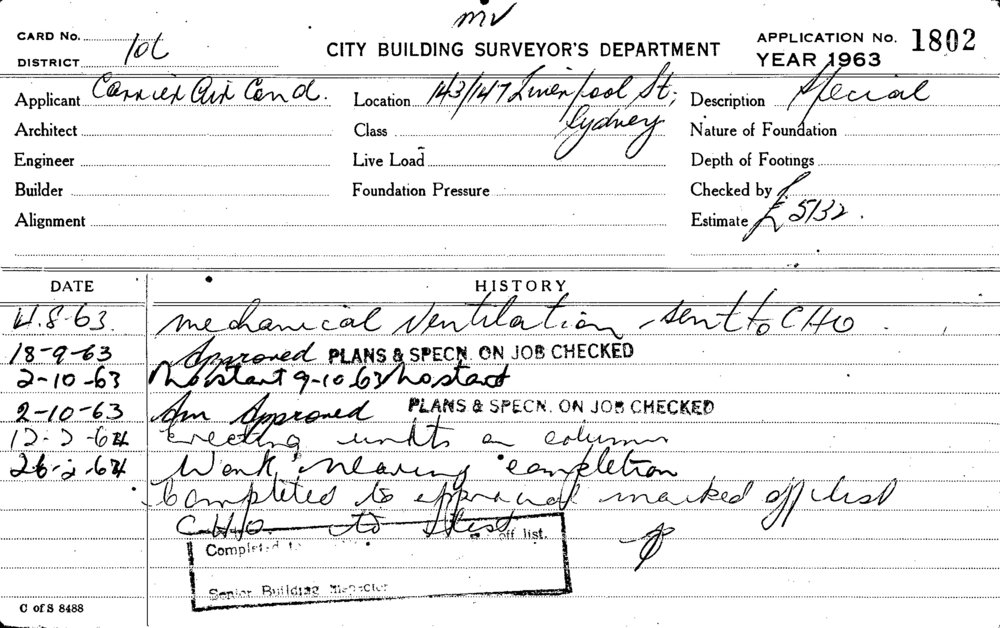 mv
CARD No.
DISTRICT
CITY BUILDING SURVEYOR'S DEPARTMENT
APPLICATION No. 1802
YEAR 1963
Applicant Carrier Air Cond. Location 143/147 Liverpool St; Sydney Description Special
Architect Class Nature of Foundation
Engineer Live Load Depth of Footings
Builder Foundation Pressure Checked by
Alignment Estimate £ 5132.
DATE HISTORY
4.8-63. mechanical Ventilation - sent to CHO.
18-9-63 Approved PLANS & SPECN. ON JOB CHECKED
2-10-63 No start 9-10.63 No start
2-10-63 Am Approved PLANS & SPECN. ON JOB CHECKED
12-2-64 Erecting units on column
26-2-64 Work nearing completion
Completed to approval marked off list
C.H.O. to list
Completed to off list.
Senior Building Inspector
C of S 8488